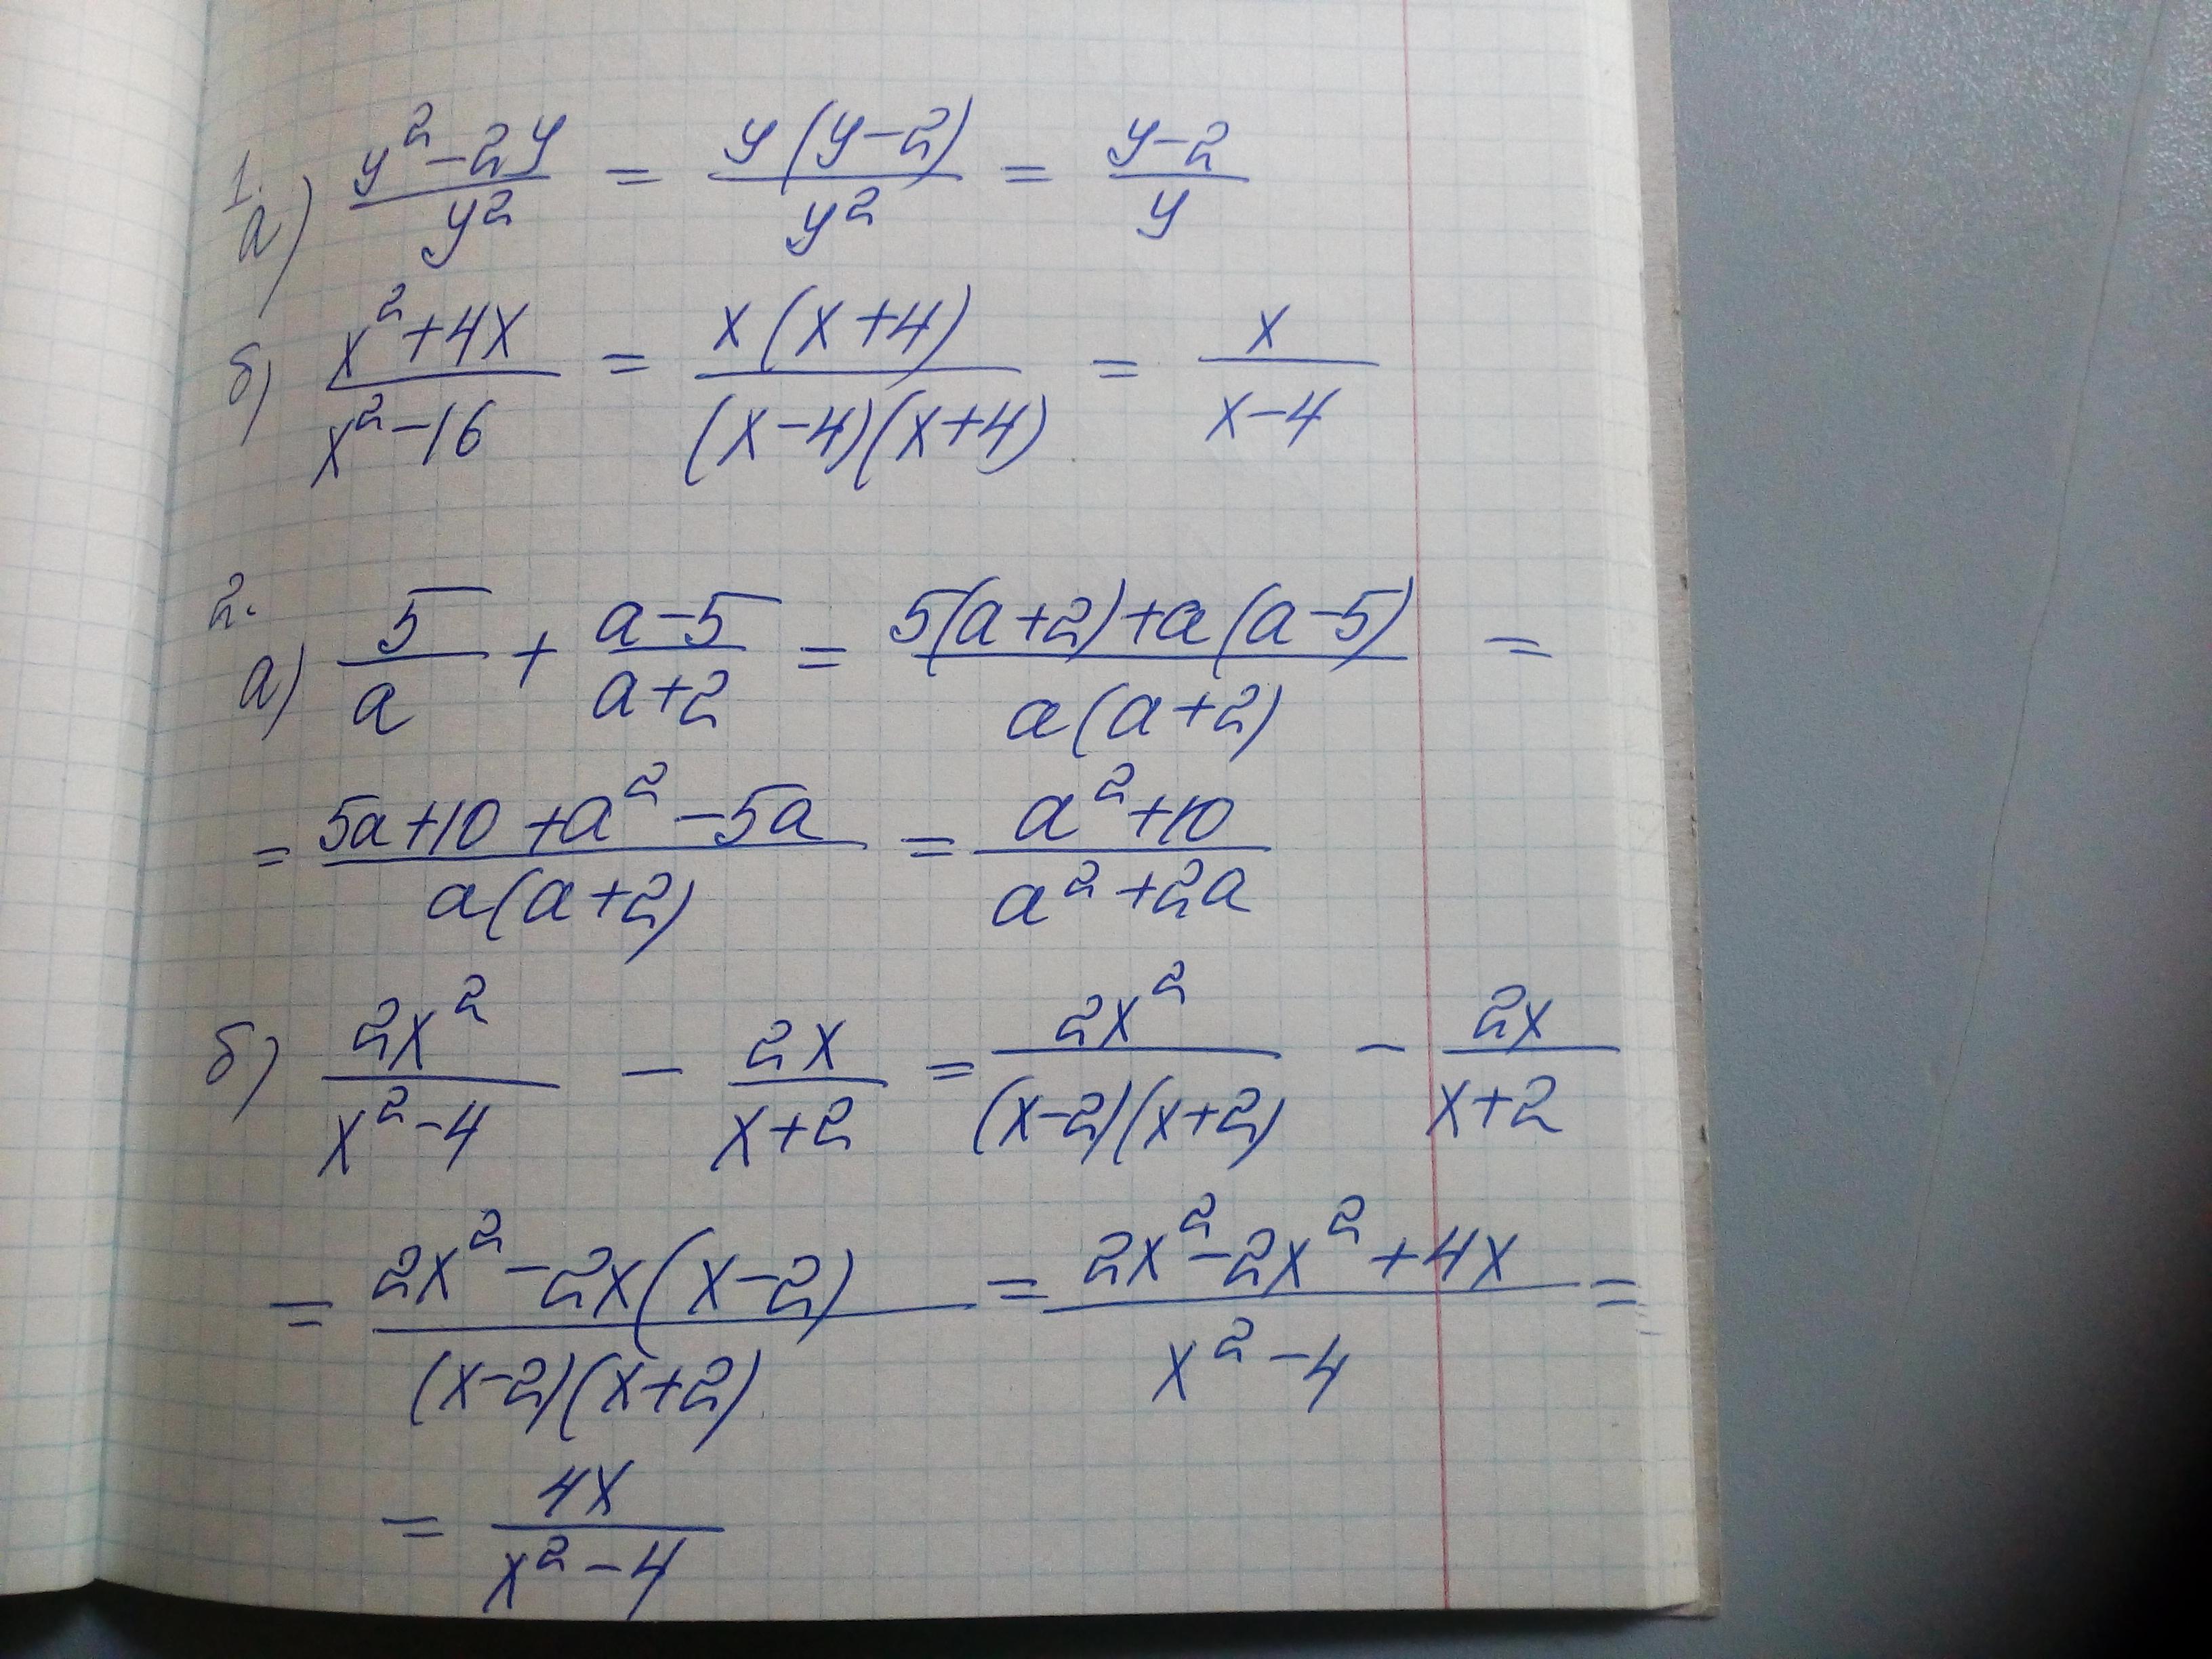 1.
а) (y² - 2y)/y² = y(y-2)/y² = (y-2)/y
б) (x² + 4x)/(x² - 16) = x(x+4)/((x-4)(x+4)) = x/(x-4)
2.
а) 5/a + (a-5)/(a+2) = (5(a+2)+a(a-5))/(a(a+2)) =
= (5a+10+a²-5a)/(a(a+2)) = (a²+10)/(a²+2a)
б) 2x²/(x²-4) - 2x/(x+2) = 2x²/((x-2)(x+2)) - 2x/(x+2)
= (2x²-2x(x-2))/((x-2)(x+2)) = (2x²-2x²+4x)/(x²-4) =
= 4x/(x²-4)